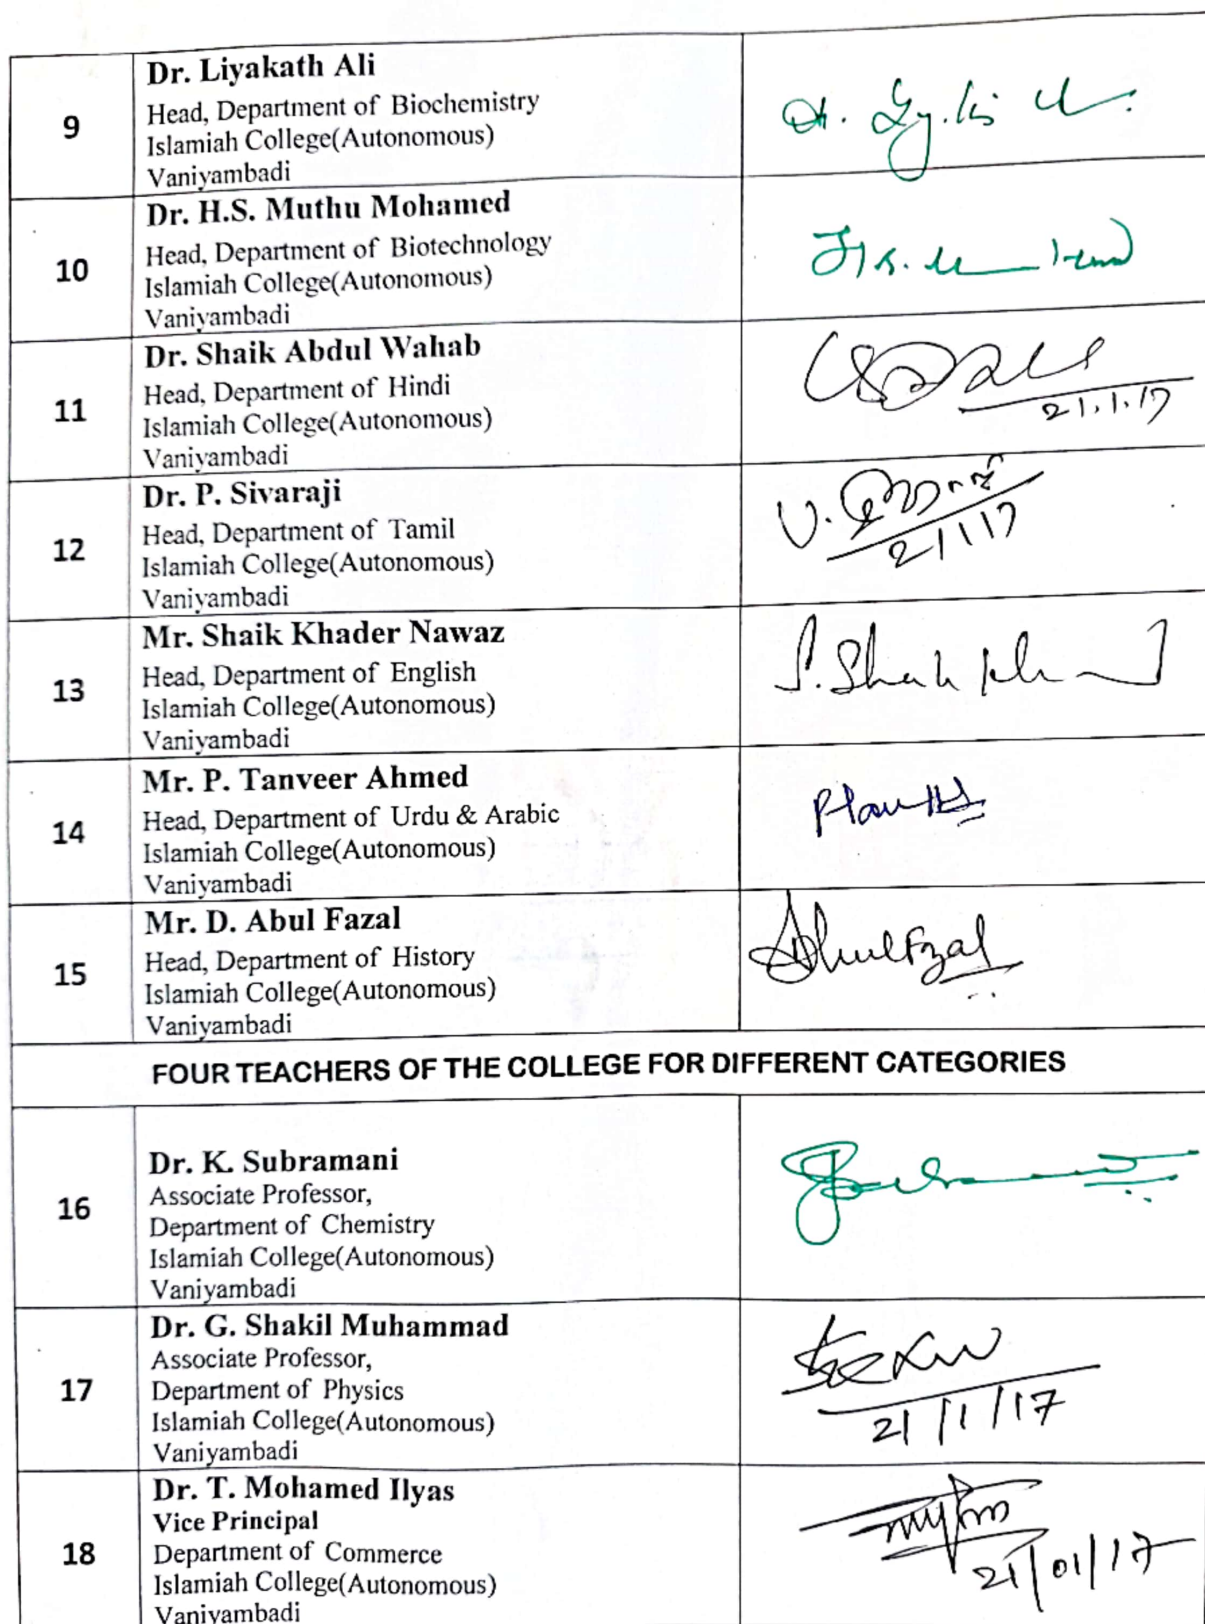 9
Dr. Liyakath Ali
Head, Department of Biochemistry
Islamiah College(Autonomous)
Vaniyambadi
10
Dr. H.S. Muthu Mohamed
Head, Department of Biotechnology
Islamiah College(Autonomous)
Vaniyambadi
11
Dr. Shaik Abdul Wahab
Head, Department of Hindi
Islamiah College(Autonomous)
Vaniyambadi
21.1.17
12
Dr. P. Sivaraji
Head, Department of Tamil
Islamiah College(Autonomous)
Vaniyambadi
21/1/17
13
Mr. Shaik Khader Nawaz
Head, Department of English
Islamiah College(Autonomous)
Vaniyambadi
14
Mr. P. Tanveer Ahmed
Head, Department of Urdu & Arabic
Islamiah College(Autonomous)
Vaniyambadi
15
Mr. D. Abul Fazal
Head, Department of History
Islamiah College(Autonomous)
Vaniyambadi
AbulFazal
FOUR TEACHERS OF THE COLLEGE FOR DIFFERENT CATEGORIES
16
Dr. K. Subramani
Associate Professor,
Department of Chemistry
Islamiah College(Autonomous)
Vaniyambadi
17
Dr. G. Shakil Muhammad
Associate Professor,
Department of Physics
Islamiah College(Autonomous)
Vaniyambadi
21/1/17
18
Dr. T. Mohamed Ilyas
Vice Principal
Department of Commerce
Islamiah College(Autonomous)
Vaniyambadi
21/01/17